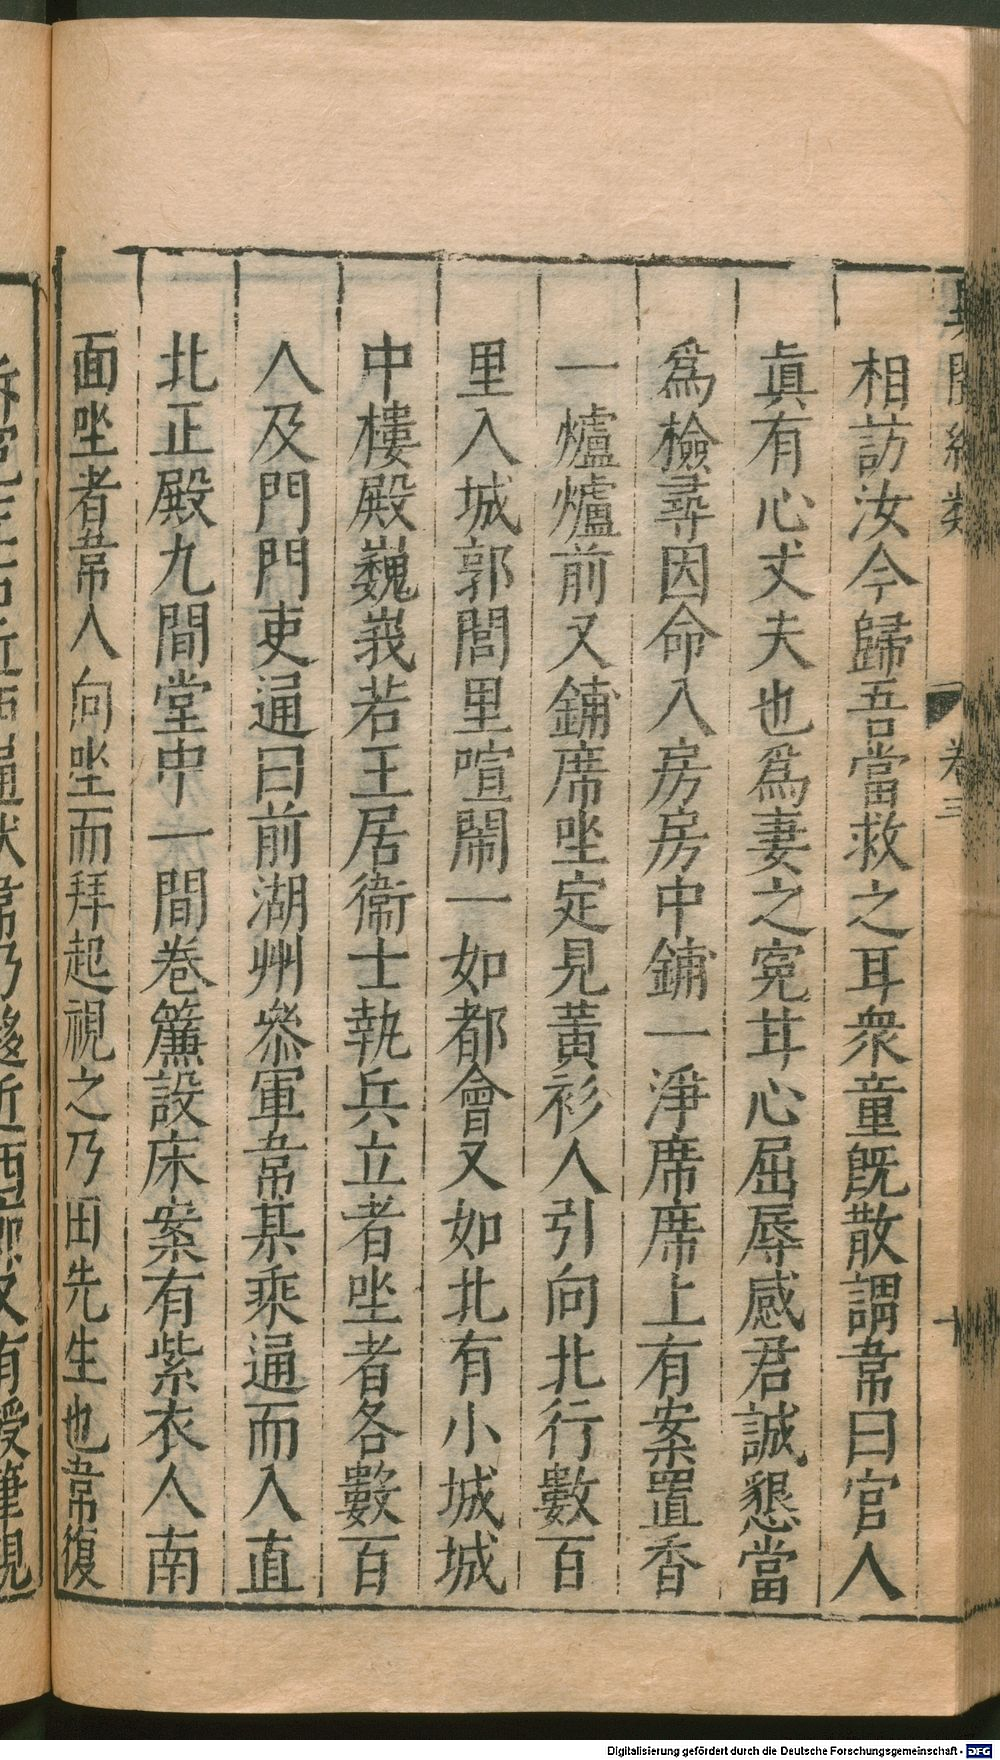 相訪汝今歸吾當救之耳衆童既散謂韋曰官人
眞有心丈夫也爲妻之寃甘心屈辱感君誠懇當
爲檢尋因命入房房中鋪一淨席席上有案置香
一爐爐前又鋪席坐定見黃衫人引向北行數百
里入城郭閭里喧鬧一如都會又如北有小城城
中樓殿巍峩若王居衞士執兵立者坐者各數百
人及門門吏通曰前湖州叅軍韋某乘通而入直
北正殿九間堂中一間卷簾設床案有紫衣人南
面坐者韋入向坐而拜起視之乃田先生也韋復
卷三
Digitalisierung gefördert durch die Deutsche Forschungsgemeinschaft - DFG